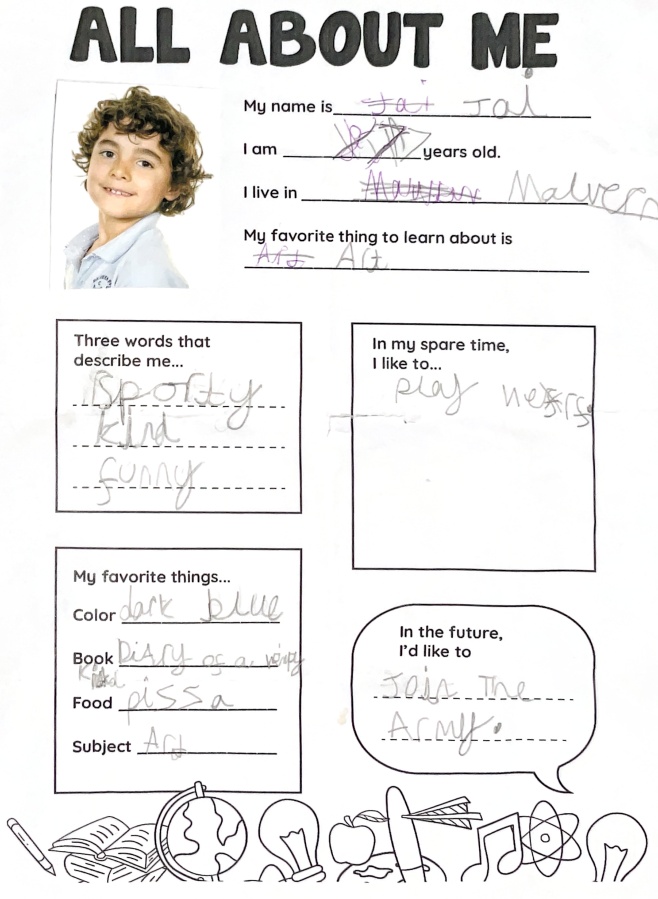 ALL ABOUT ME
My name is Jai Jai
I am 7 years old.
I live in Malvern
My favorite thing to learn about is
Art Art
Three words that
describe me...
Sporty
kind
funny
In my spare time,
I like to...
play
My favorite things...
Color dark blue
Book DiAry of a wimpy
Kid
Food pissa
Subject Art
In the future,
I'd like to
Join The
Army.